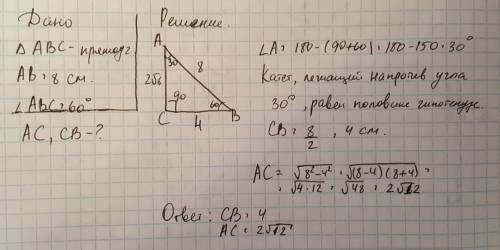 Дано
Решение.
△ ABC - прямоуг.
AB = 8 см.
∠ ABC = 60°
AC, CB - ?
A
30
8
2√6
90
60°
C
4
B
∠A = 180 - (90+60) = 180 - 150 = 30°
Катет, лежащий напротив угла
30°, равен половине гипотенузе.
CB = 8/2 = 4 см.
AC = √8²-4² = √(8-4)(8+4) =
= √4·12 = √48 = 2√12
Ответ: CB = 4
AC = 2√12